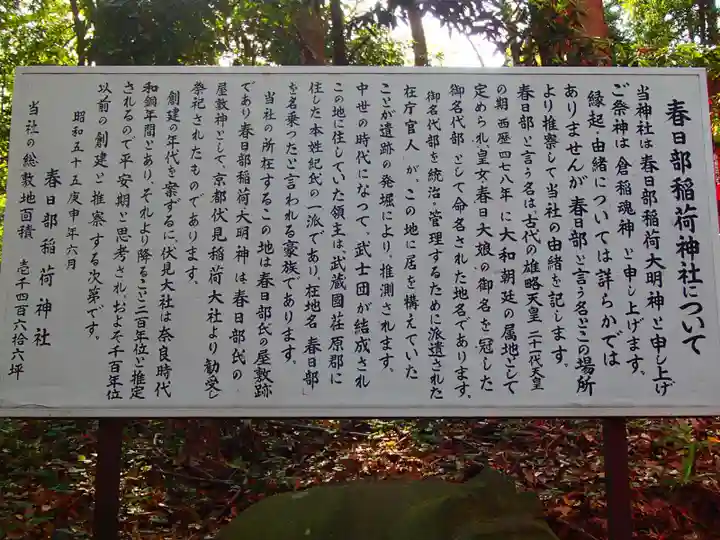 春日部稲荷神社について
当神社は春日部稲荷大明神と申し上げ
ご祭神は倉稲魂神と申し上げます、
縁起・由緒については詳らかでは
ありませんが春日部と言う名とこの場所
より推察して当社の由緒を記します。
春日部と言う名は古代の雄略天皇二十一代天皇
の期西歴四七八年に大和朝廷の属地として
定められ、皇女春日大娘の御名を冠した
御名代部として命名された地名であります。
御名代部を統治・管理するために派遣された
在庁官人が、この地に居を構えていた
ことが遺跡の発掘により、推測されます。
中世の時代になって、武士団が結成され
この地に住していた領主は、武蔵國荏原郡に
住した本姓紀氏の一派であり、在地名「春日部」
を名乗ったと言われる豪族であります。
当社の所在するこの地は春日部氏の屋敷跡
であり春日部稲荷大明神は春日部氏の
屋敷神として、京都伏見稲荷大社より勧受し
祭祀されたものであります。
創建の年代を案ずるに、伏見大社は奈良時代
和銅年間とあり、それより降ること二百年位と推定
されるので平安期と思考され、およそ千百年位
以前の創建と推察する次第です。
昭和五十五庚申年六月
春日部稲荷神社
当社の総敷地面積 壱千四百六拾六坪